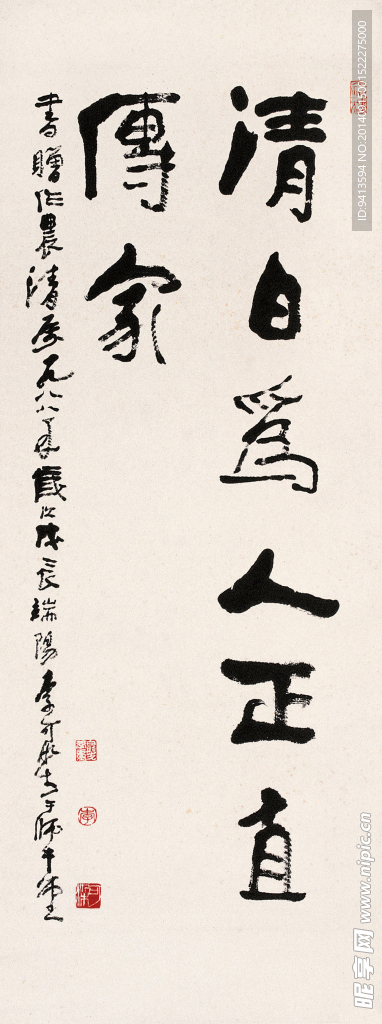 清白為人正直
傳家
書贈作農清屬一九八八年歲次戊辰端陽李可染於師牛堂
李
可染
ID:9413594 NO:20140915001522275000
昵享网 www.nipic.cn